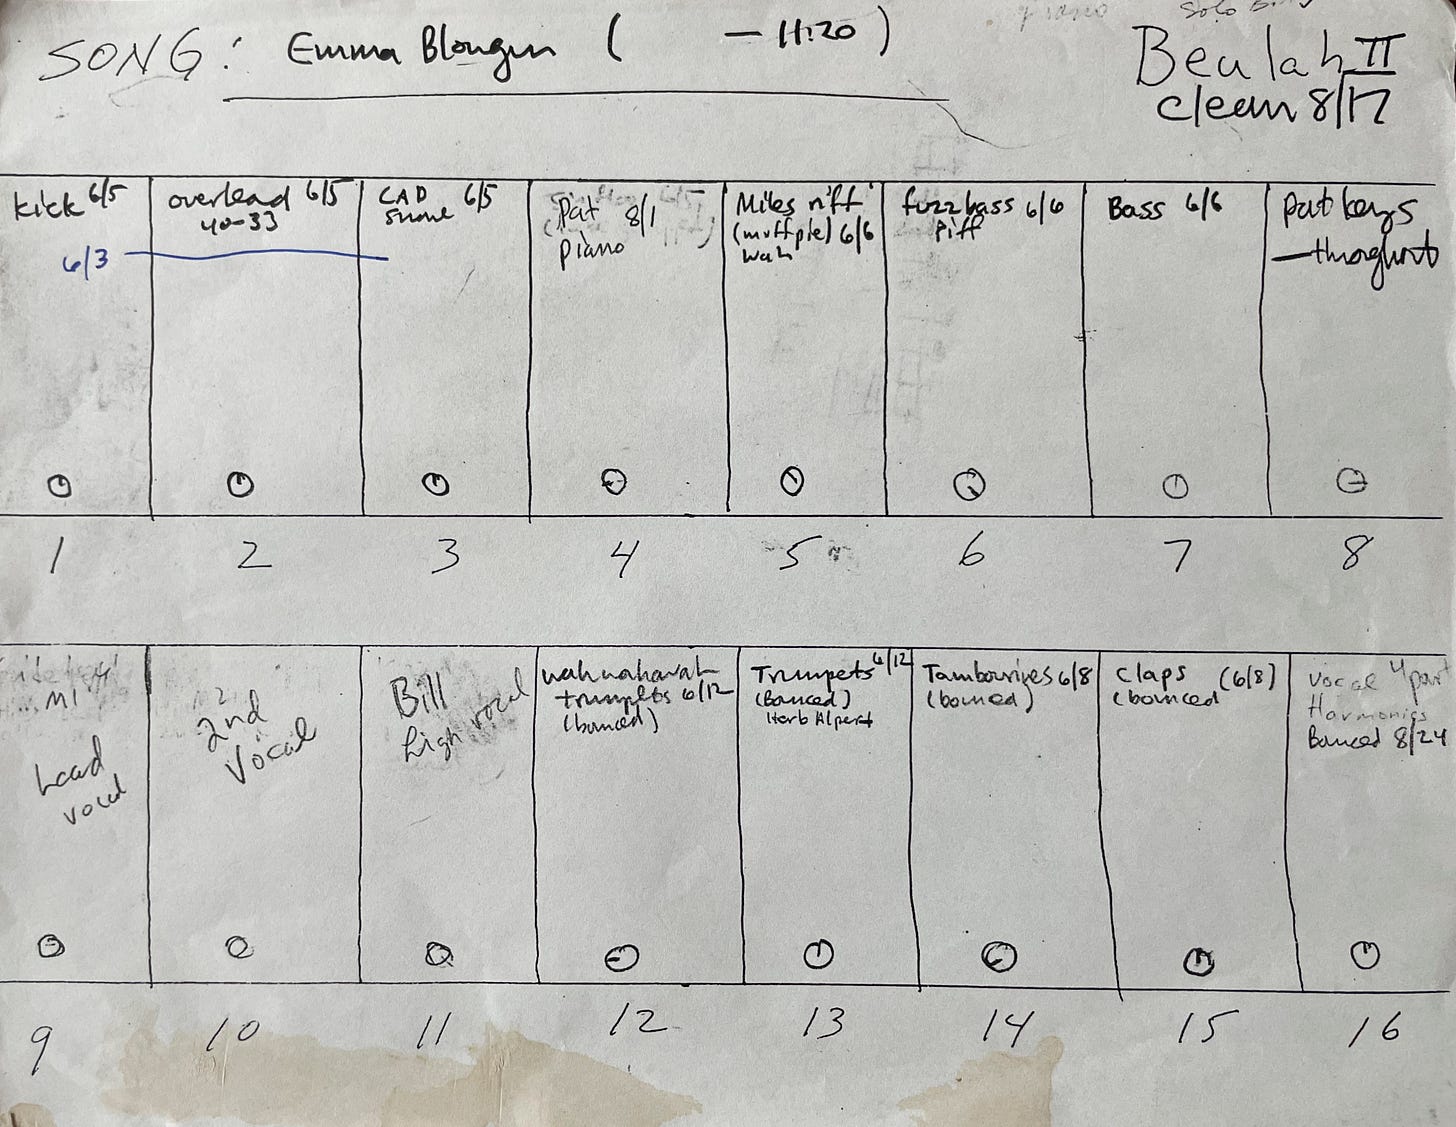 piano solo
SONG: Emma Blowgun ( — 11:20 )
Beulah II
clean 8/17
kick 6/5
6/3
overhead 6/5
40-33
CAD 6/5
snare
Pat 8/1
piano
Miles riff
(muffple) 6/6
wah
fuzz bass 6/6
riff
Bass 6/6
pat keys
— throghout
1 2 3 4 5 6 7 8
M1
Lead
vocal
2
2nd
Vocal
Bill
high vocal
wahwahwah
trumpets 6/12
(bounced)
Trumpets 6/12
(Bounced)
Herb Alpert
Tambourines 6/8
(bounced)
Claps (6/8)
(bounced
Vocal 4 part
Harmonies
Bounced 8/24
9 10 11 12 13 14 15 16